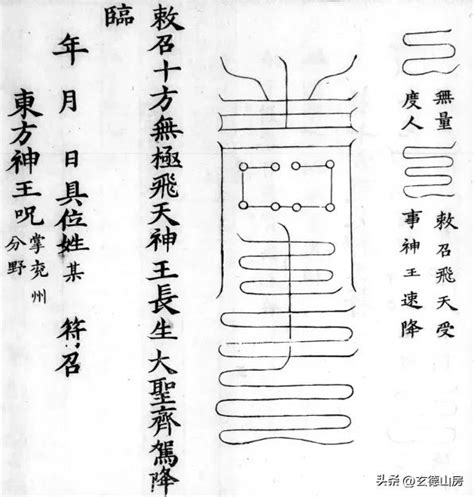 無量
度人
敕召飛天受
事神王速降
敕召十方無極飛天神王長生大聖齊駕降
臨
年 月 日具位姓某 符召
東方神王咒掌兗州
分野
头条@玄德山房